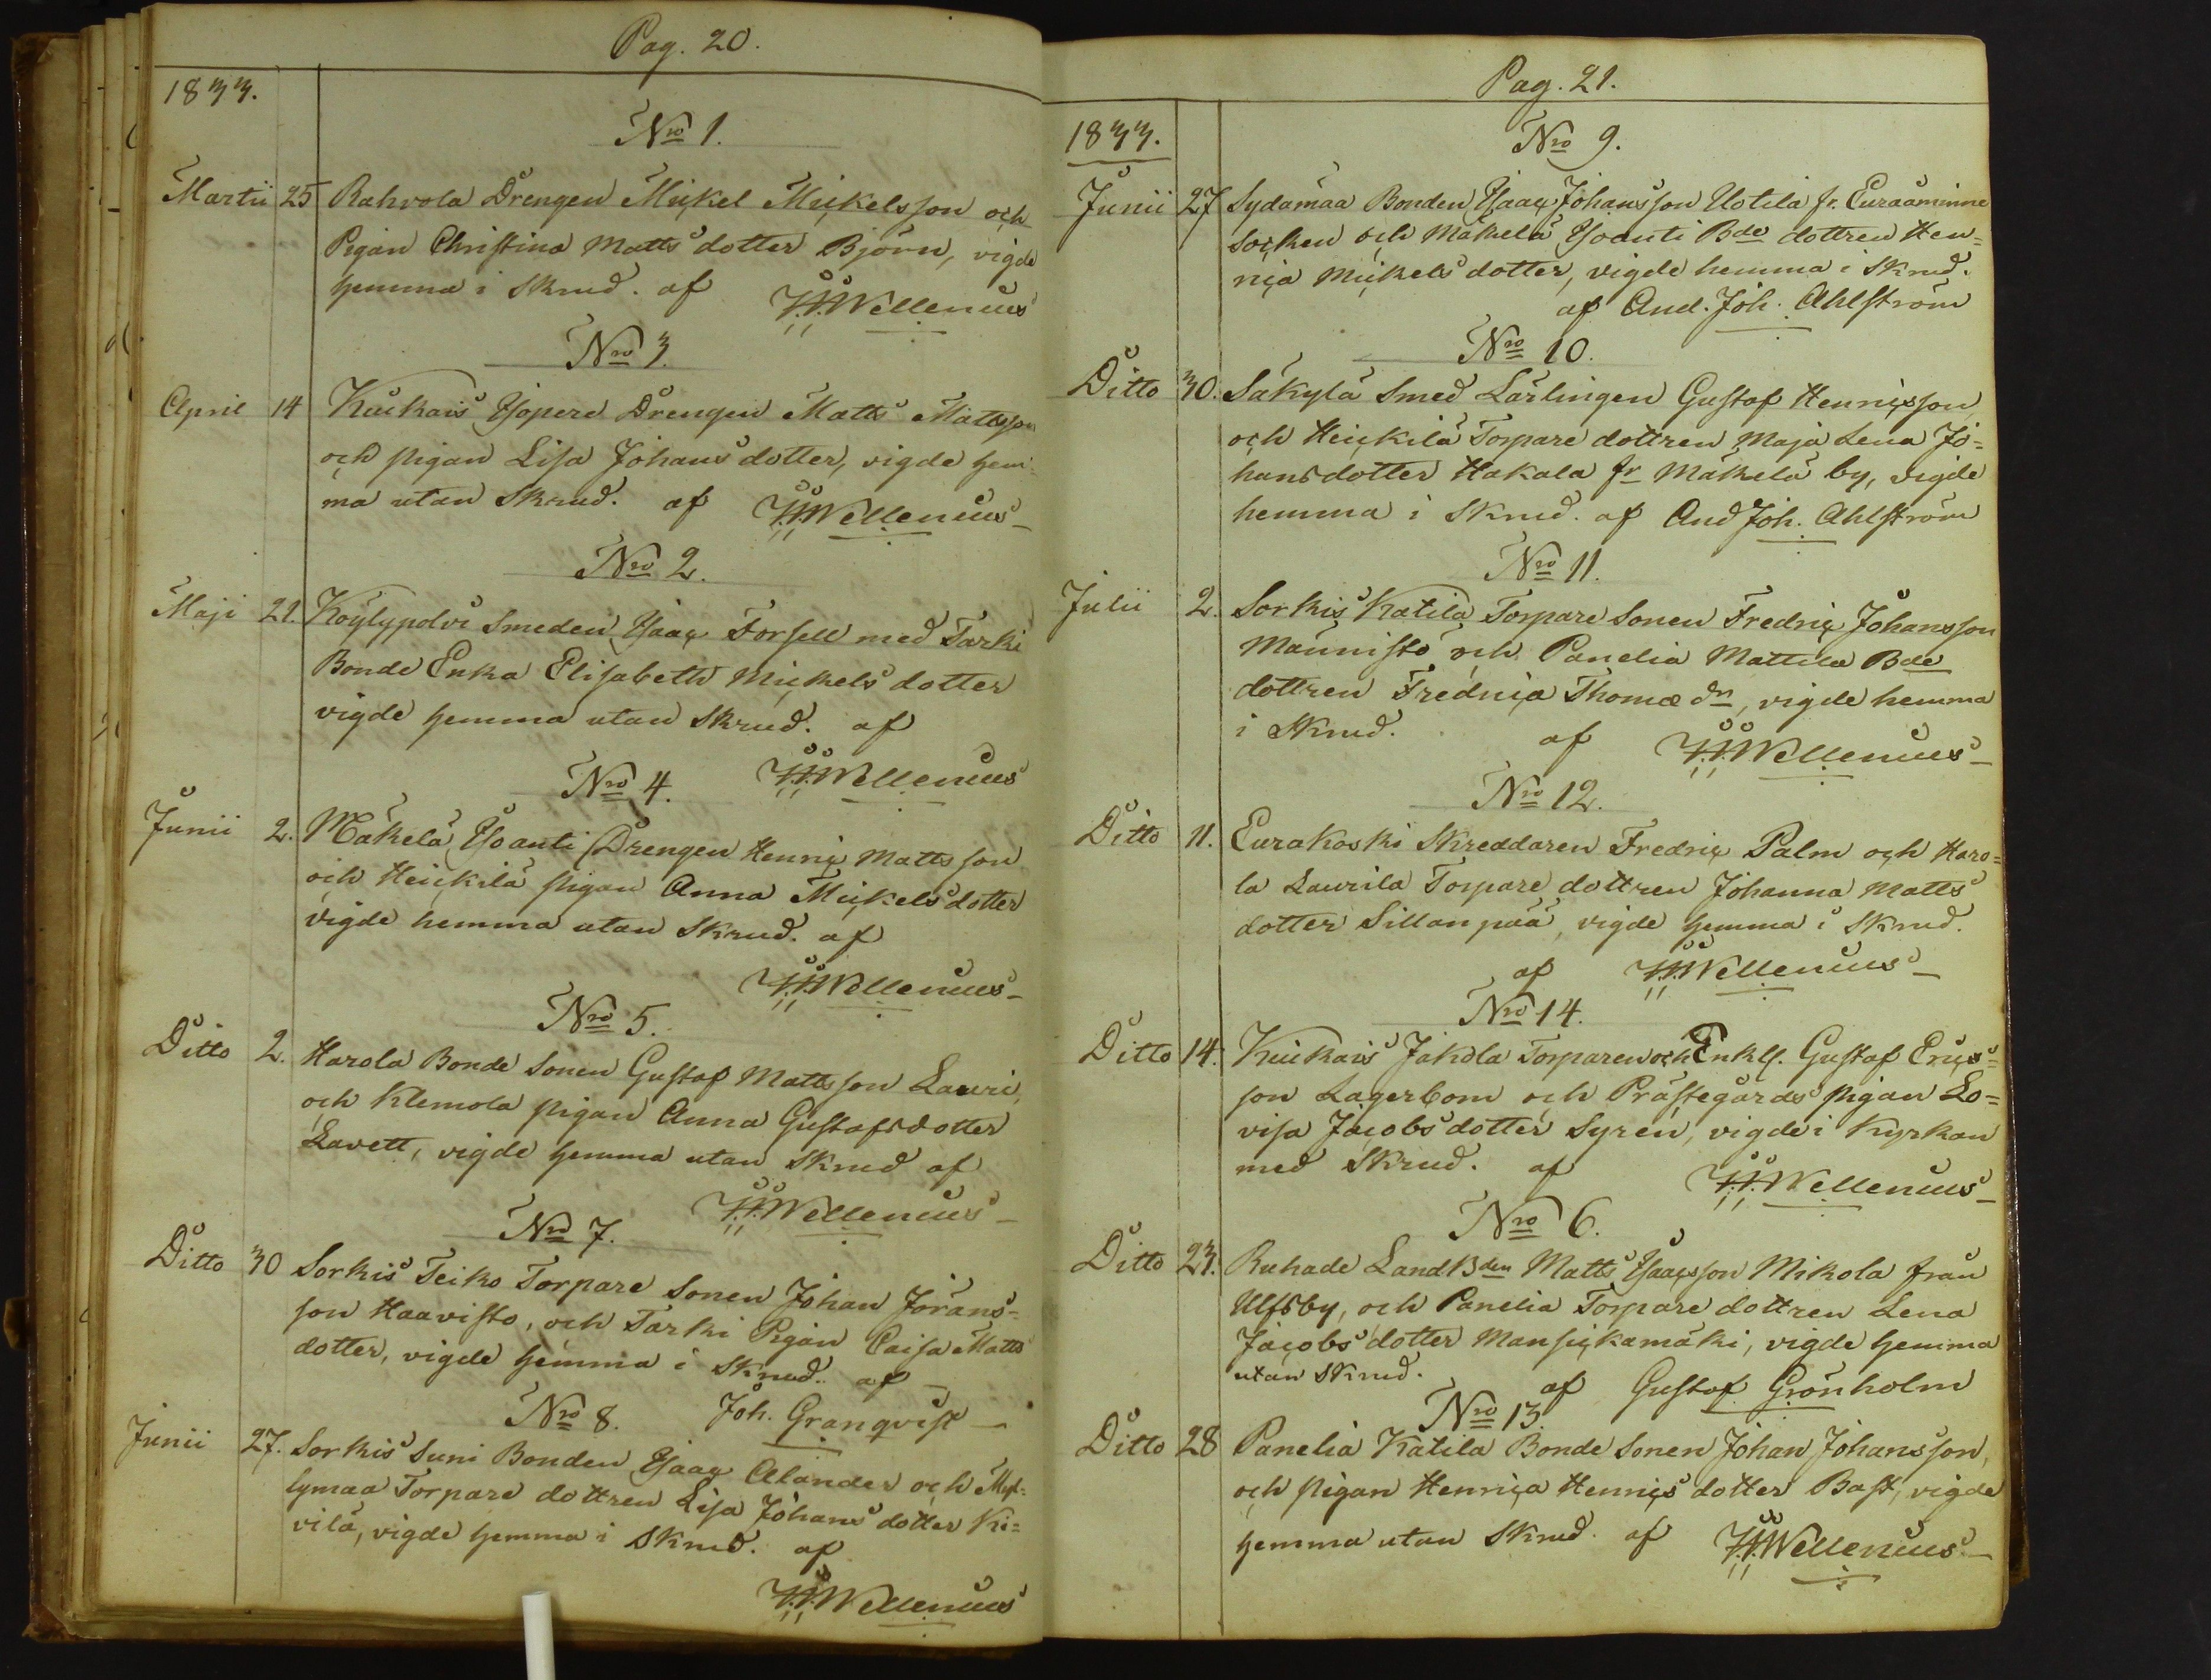 Pag. 20.
1833.
Nro 1.
Martii 25 Rahvola Drengen Mickel Mickelsson och
Pigan Christina Matts dotter Björn, vigde
hemma i Skrud. af H.H.Wellenius
Nro 3.
April 14 Kiukais Ysopere Drengen Matts Mattsson
och pigan Lisa Johans dotter, vigde hem-
ma utan Skrud. af H.H.Wellenius
Nro 2.
Maji 21. Köylypolvi Smeden Isaac Forsell med Tarki
Bonde Enka Elisabeth Mickels dotter
vigde hemma utan Skrud. af
H.H.Wellenius
Nro 4.
Junii 2. Mäkelä Yso anti Drengen Henric Matts son
och Heickilä pigan Anna Mickels dotter
vigde hemma utan Skrud. af
H.H.Wellenius
Nro 5.
Ditto 2. Harola Bonde Sonen Gustaf Matts son Lauri,
och Klemola pigan Anna Gustafsdotter
Lavett, vigde hemma utan Skrud af
H.H.Wellenius
Nro 7.
Ditto 30 Sorkis Teiko Torpare Sonen Johan Jörans=
son Haavisto, och Tarki Pigan Caisa Matts
dotter, vigde hemma i Skrud. af
Joh. Granqvist
Nro 8.
Junii 27. Sorkis Suni Bonden Isaac Alander och Myl=
lymaa Torpare dottren Lisa Johans dotter Ki=
vilä, vigde hemma i Skrud. af
H.H.Wellenius
Pag. 21.
1833.
Nro 9.
Junii 27 Sydämaa Bonden Isaac Johansson Uotila fr. Euraåminne
Socken och Mäkelä Yso anti Bde dottren Hen=
rica Mickels dotter, vigde hemma i Skrud.
af And. Joh. Ahlström
Nro 10.
Ditto 30. Säkylä Smed Lärlingen Gustaf Henricsson,
och Heickilä Torpare dottren Maja Lena Jo=
hansdotter Hakala fr Mäkelä by, vigde
hemma i Skrud. af And Joh. Ahlström
Nro 11.
Julii 2. Sorkis Katila Torpare Sonen Fredric Johansson
Männistö och Panelia Mattila Bde
dottren Fredrica Thomæ dr, vigde hemma
i Skrud. af H.H.Wellenius
Nro 12.
Ditto 11. Eurakoski Skreddaren Fredric Palm och Haro=
la Laurila Torpare dottren Johanna Matts
dotter Sillanpää, vigde hemma i Skrud.
af H.H.Wellenius
Nro 14.
Ditto 14. Kiukais Jakola Torparen och Enkl. Gustaf Erics=
son Lagerbom och Prästegårds pigan Lo=
visa Jacobs dotter Syrén, vigde i Kyrkan
med Skrud. af H.H.Wellenius
Nro 6.
Ditto 23. Ruhade Land Bden Matts Isacsson Mikola från
Ulfsby, och Panelia Torpare dottren Lena
Jacobs dotter Mansickamäki, vigde hemma
utan Skrud. af Gustaf Grönholm
Nro 13.
Ditto 28 Panelia Katila Bonde Sonen Johan Johansson,
och pigan Henrica Henrics dotter Bast, vigde
hemma utan Skrud. af H.H.Wellenius